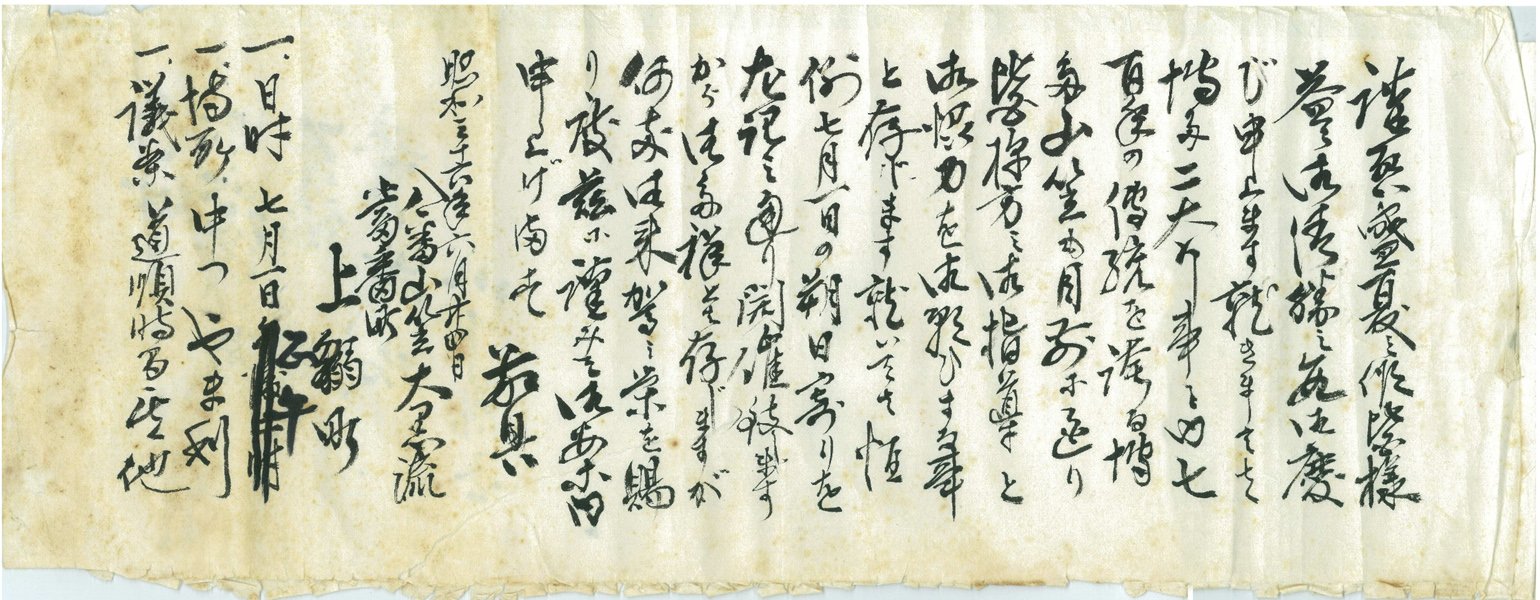 謹啓 盛夏之候皆々様
益々御清勝之段御慶
び申上ます就きましては
博多二大行事之内七
百年の傳統を誇る博
多山笠も目前に迫り
皆々様方之御指導と
御協力を御願ひする事
と存じます就いては恒
例七月一日の朔日寄りを
左記之通り開催致します
から御多祥とは存じますが
何卒御来駕之栄を賜
り度茲に謹みて御案内
申上げます
敬具
昭和三十六年六月廿四日
八番山笠大黒流
当番町
上鰯町
一、日時 七月一日 正午
一、場所 中つ やま利
一、議案 道順時間其他